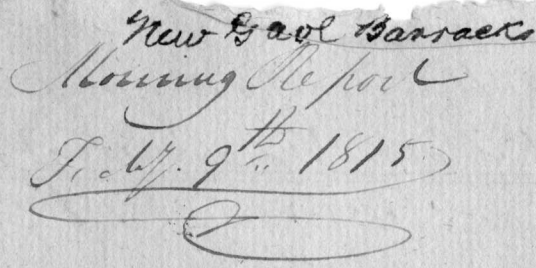 New Gaol Barracks
Morning Report
Feby. 9th 1815